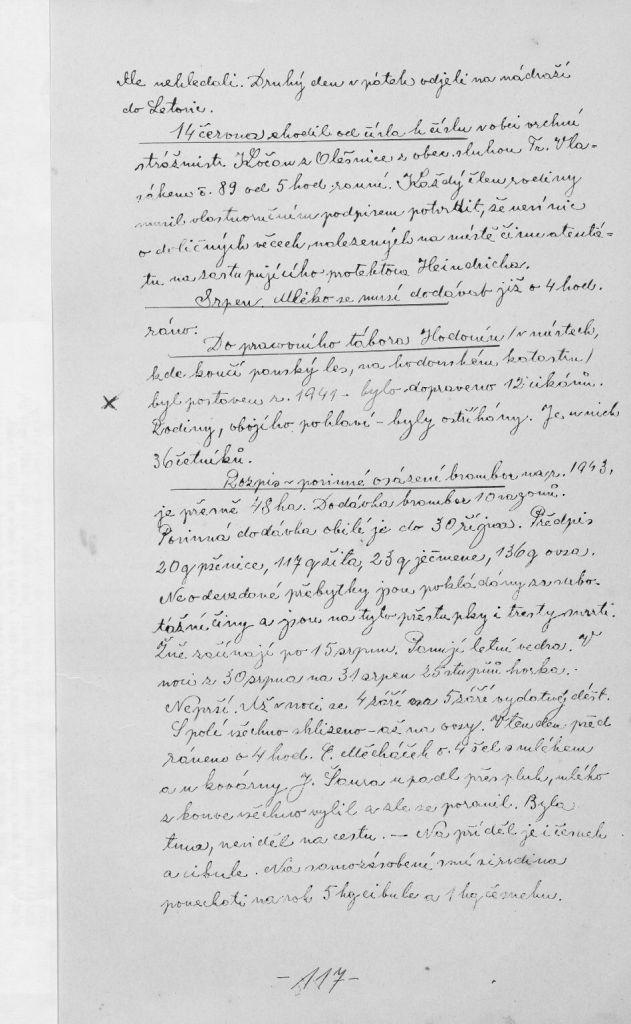 dle nehledali. Druhý den v pátek odjeli na nádraží
do Letovic.
14 června chodil od čísla k číslu v obci vrchní
strážmistr Kočan z Olešnice z obec. sluhou Fr. Vla-
sákem č. 89 od 5 hod. ranní. Každý člen rodiny
musil vlastnoručním podpisem potvrdit, že neví nic
o doličných věcech, nalezených na místě činu atentá-
tu na zastupujícího protektora Heindricha.
Srpen. Mléko se musí dodávat již o 4 hod.
ráno.
Do pracovního tábora Hodonín / v místech,
kde končí panský les, na hodonském katastru /
byl postaven r. 1941 - bylo dopraveno 12 cikánů.
Rodiny, obojího pohlaví - byly ostříhány. Je u nich
36 četníků.
Rozpis - povinné osázení brambor na r. 1943,
je přesně 48 ha. Dodávka brambor 10 vagonů.
Povinná dodávka obilí je do 30 října. Předpis
20 q pšenice, 117 q žita, 23 q ječmene, 136 q ovsa.
Neodevzdané přebytky jsou pokládány za sabo-
tážní činy a jsou na tyto přestupky i tresty smrti.
Žně začínají po 15 srpnu. Panují letní vedra. V
noci z 30 srpna na 31 srpen 25 stupňů horka.
Neprší. Až v noci ze 4 září na 5 září vydatný déšť.
S polí všechno sklizeno - až na ovsy. V ten den před
ránem o 4 hod. C. Měcháček č. 4 šel s mlékem
a u kovárny J. Šaura upadl přes pluh, mléko
z konve všechno vylil a zle se poranil. Byla
tma, neviděl na cestu. — Na příděl je i česnek
a cibule. Na samozásobení smí si rodina
ponechati na rok 5 kg cibule a 1 kg česneku.
- 117 -